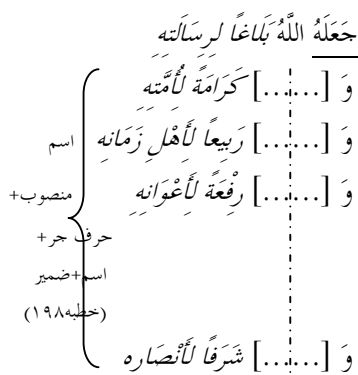 جَعَلَهُ اللَّهُ بَلَاغًا لِرِسَالَتِهِ
وَ [......] كَرَامَةً لِأُمَّتِهِ
وَ [......] رَبِيعاً لِأَهْلِ زَمَانِهِ
وَ [......] رِفْعَةً لِأَعْوَانِهِ
وَ [......] شَرَفًا لِأَنْصَارِهِ
اسم
منصوب+
حرف جر+
اسم+ضمیر
(خطبه١٩٨)